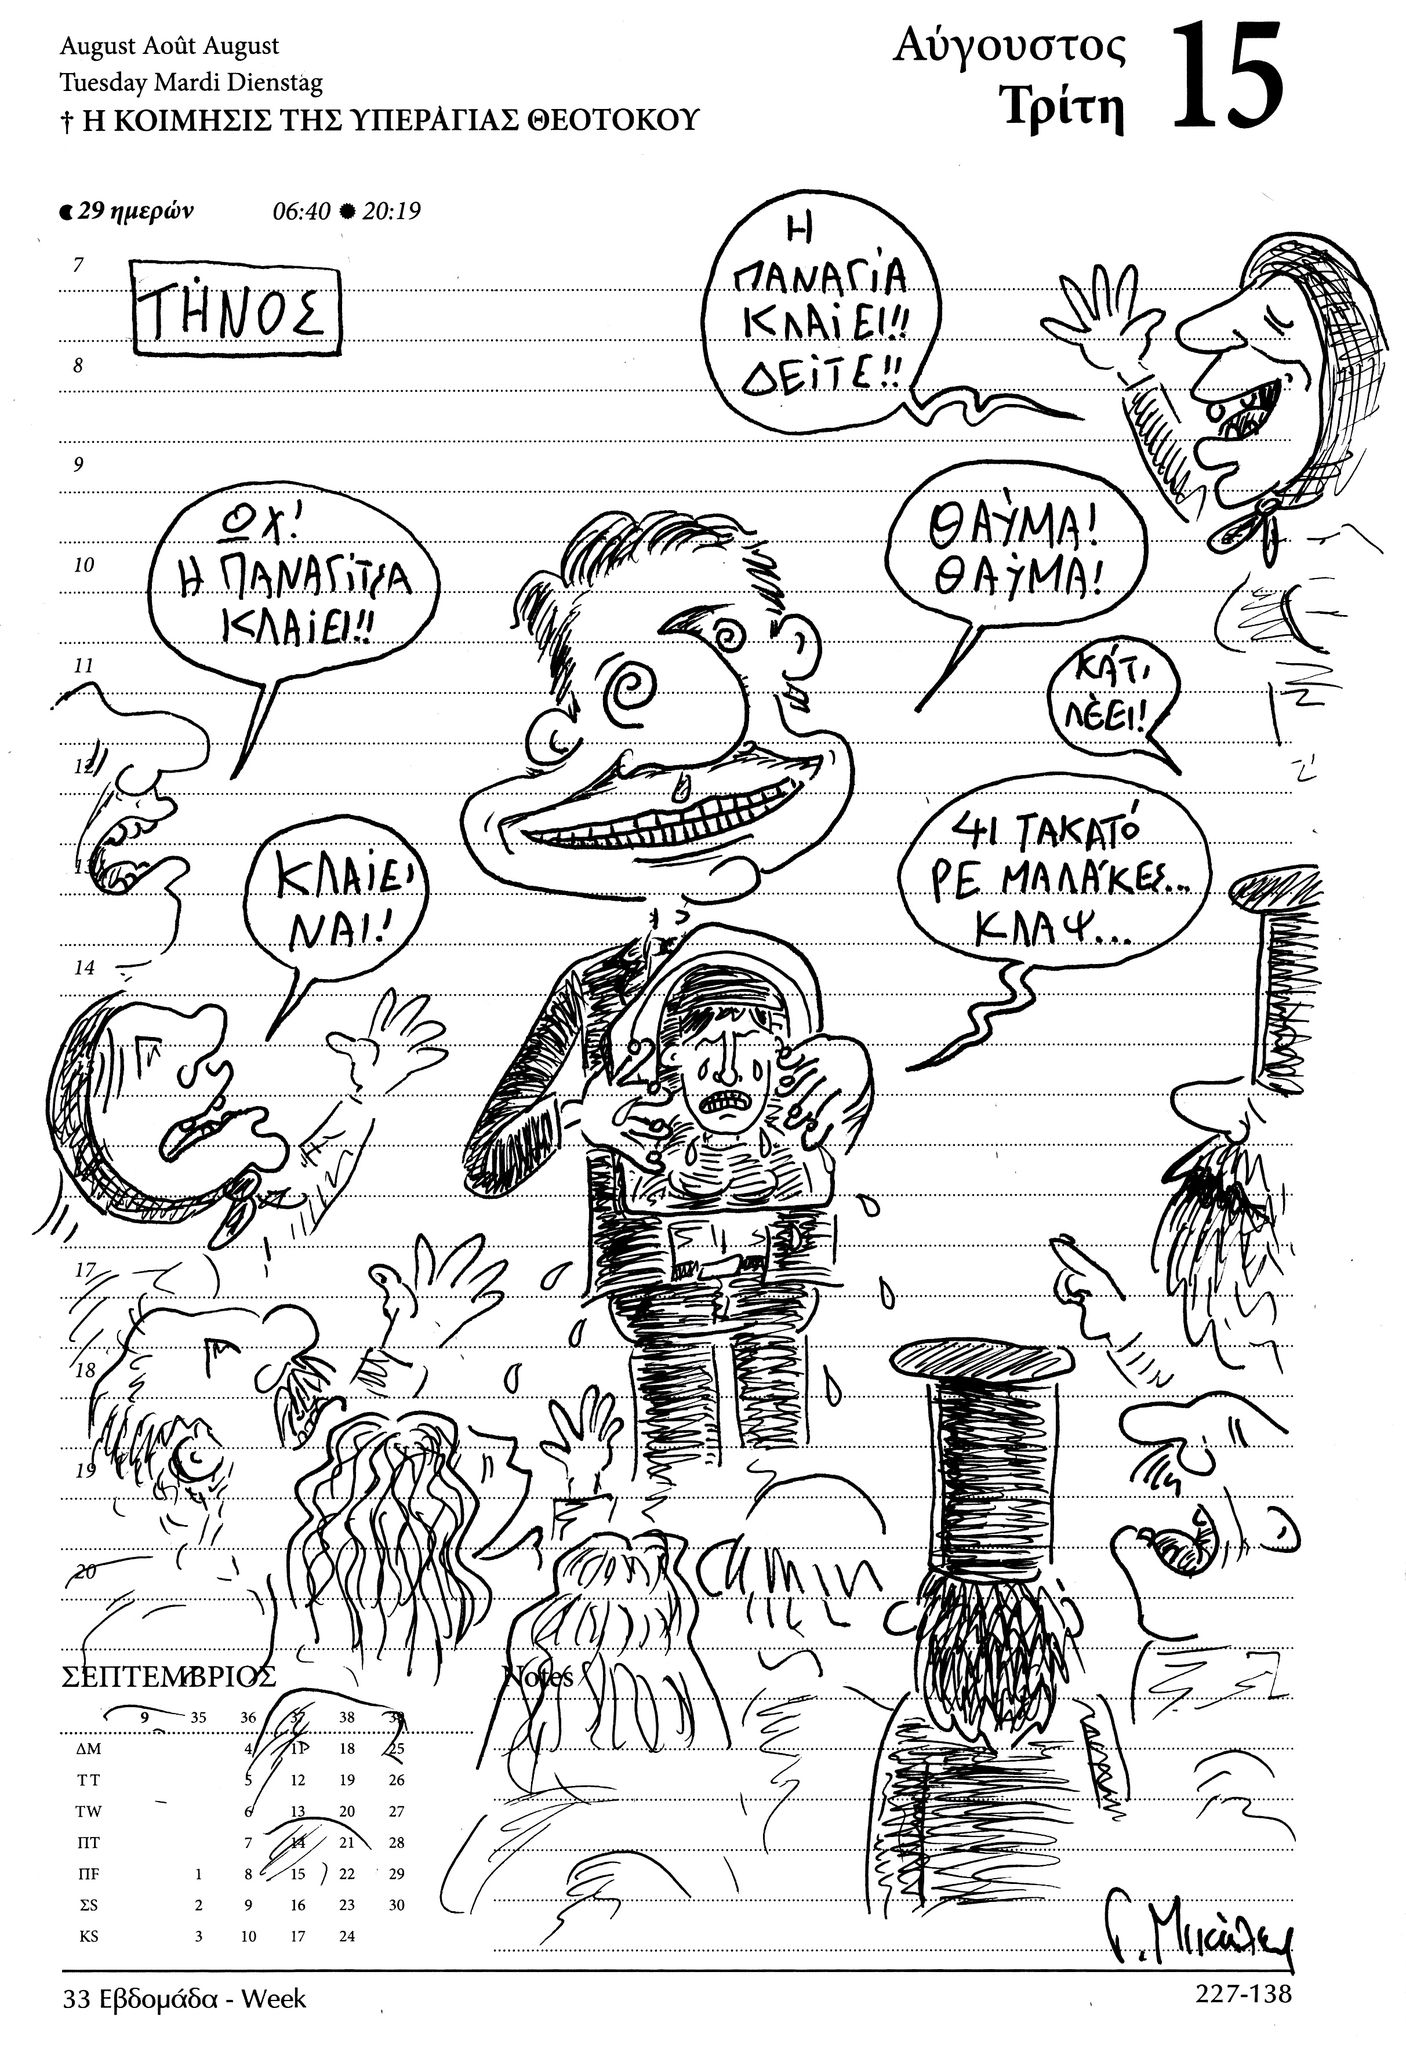 August Août August
Tuesday Mardi Dienstag
† Η ΚΟΙΜΗΣΙΣ ΤΗΣ ΥΠΕΡΑΓΙΑΣ ΘΕΟΤΟΚΟΥ
Αύγουστος
Τρίτη
15
29 ημερών 06:40 20:19
7
ΤΉΝΟΣ
Η
ΠΑΝΑΓΊΑ
ΚΛΑΊΕΙ!!
ΔΕΊΤΕ!!
8
9
ΩΧ!
Η ΠΑΝΑΓΊΤΣΑ
ΚΛΑΊΕΙ!!
ΘΑΎΜΑ!
ΘΑΎΜΑ!
10
11
ΚΆΤΙ
ΛΈΕΙ!
12
13
ΚΛΑΊΕΙ
ΝΑΙ!
41 ΤΑΚΑΤΌ
ΡΕ ΜΑΛΆΚΕΣ...
ΚΛΑΨ...
14
17
18
19
20
ΣΕΠΤΕΜΒΡΙΟΣ
Notes
9 35 36 37 38 39
ΔΜ 4 11 18 25
ΤΤ 5 12 19 26
ΤW 6 13 20 27
ΠΤ 7 14 21 28
ΠF 1 8 15 22 29
ΣS 2 9 16 23 30
ΚS 3 10 17 24
33 Εβδομάδα - Week
227-138